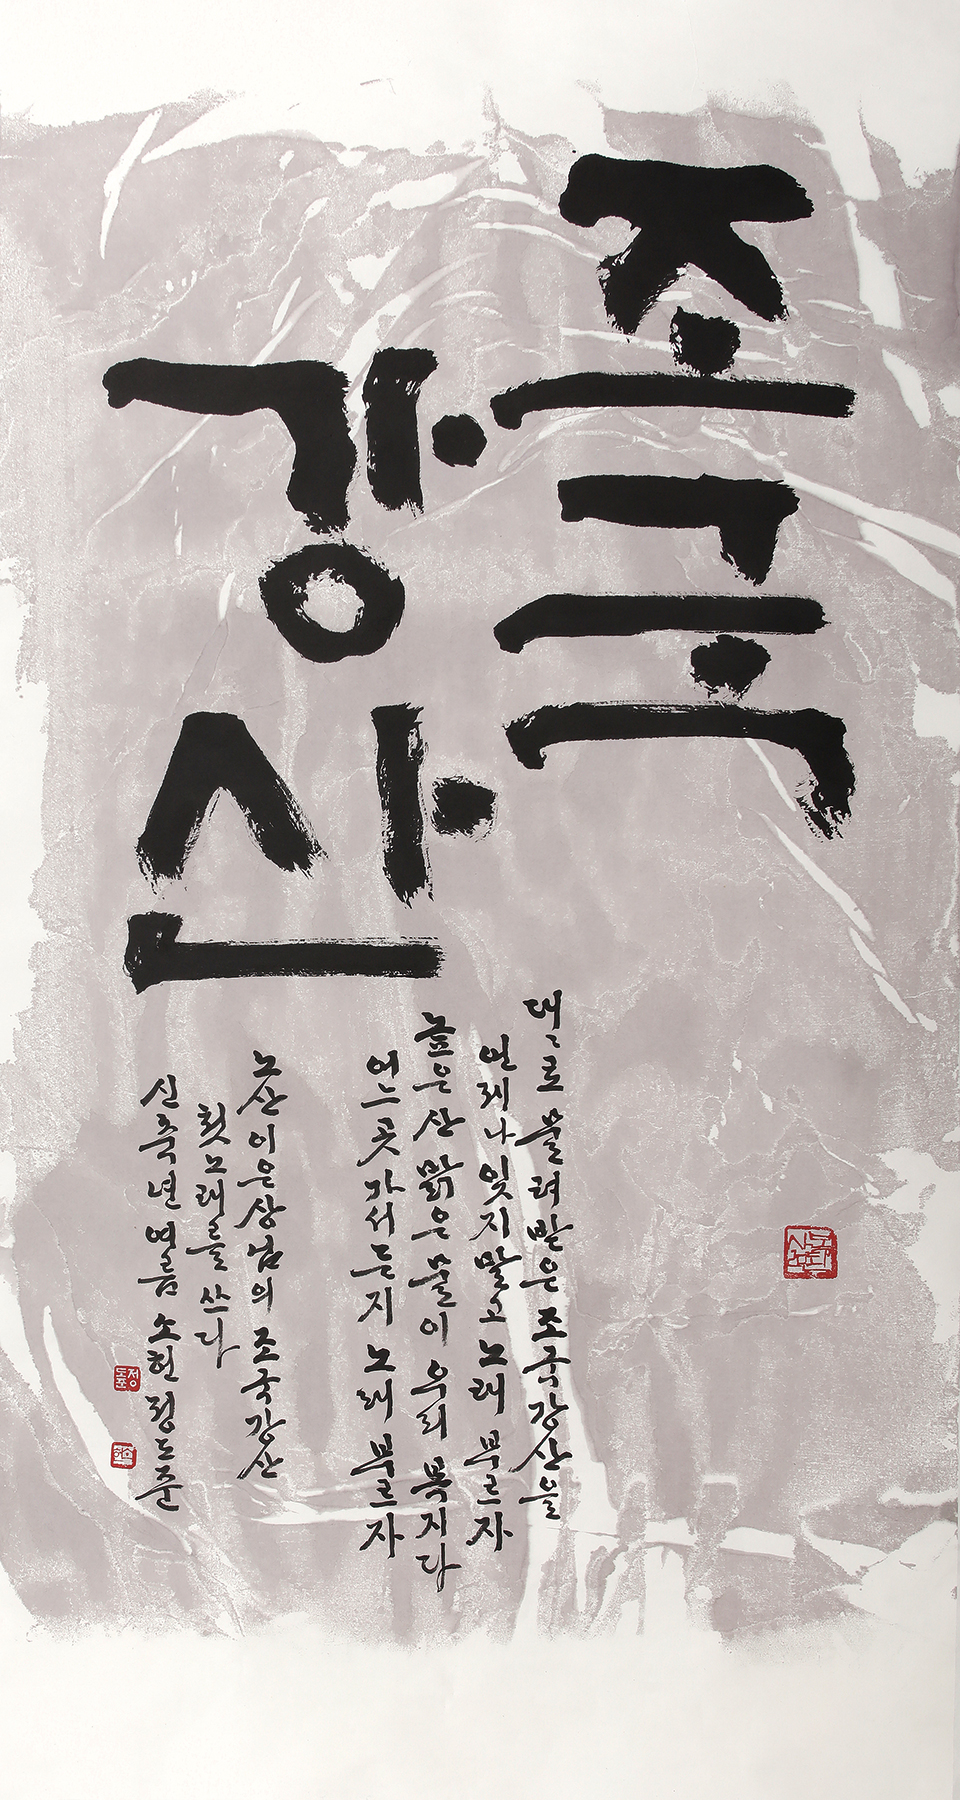 조국
강산
대〻로 물려받은 조국강산을
언제나 잊지말고 노래 부르자
높은산 맑은물이 우리 복지다
어느곳 가서든지 노래 부르자
노산 이은상님의 조국강산
첫노래를 쓰다
신축년 여름 소헌 정도준
정도준